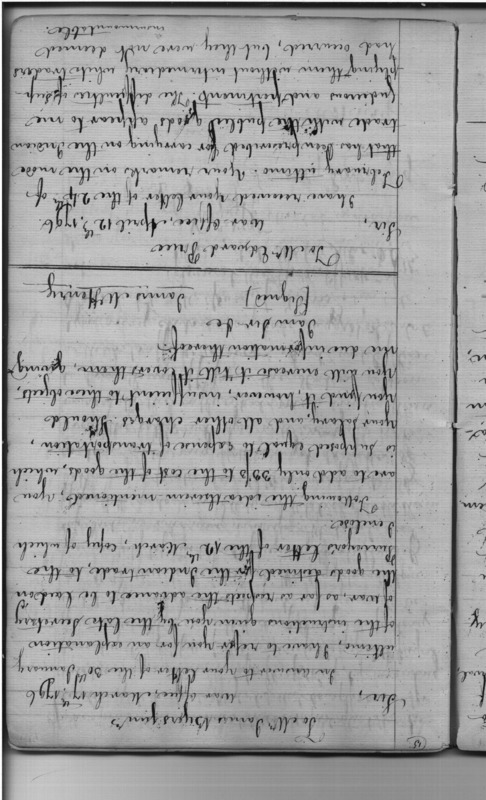 45
To Mr James Byers jun.r
War office March 17th, 1796
Sir,
In answer to your letter of the 30th January
ultimo, I have to refer you, for an explanation
of the instructions given you by the late Secretary
of War, as far as respects the advance to be laid on
the goods destined for the Indian trade, to the
Purveyor's letter of the 12th March, copy of which
I enclose
Following the idea therein mentioned, you
are to add only 33⅓ to the cost of the goods, which
is supposed equal to expense of transportation,
your salary and all other charges. Should
you find it, however, insufficient to these objects,
you will encrease it till it covers them, giving
me due information thereof.
I am Sir &c
(signed) James McHenry
To Mr Edward Price
War Office, April 12th, 1796.
Sir,
I have received your letter of the 24th of
February ultimo. Your remarks on the mode
that has been prescribed for carrying on the Indian
trade with the public goods appear to me
judicious and pertinent. The difficulties
plying them without intermediary white traders
had occurred, but they were not deemed
insurmountable.